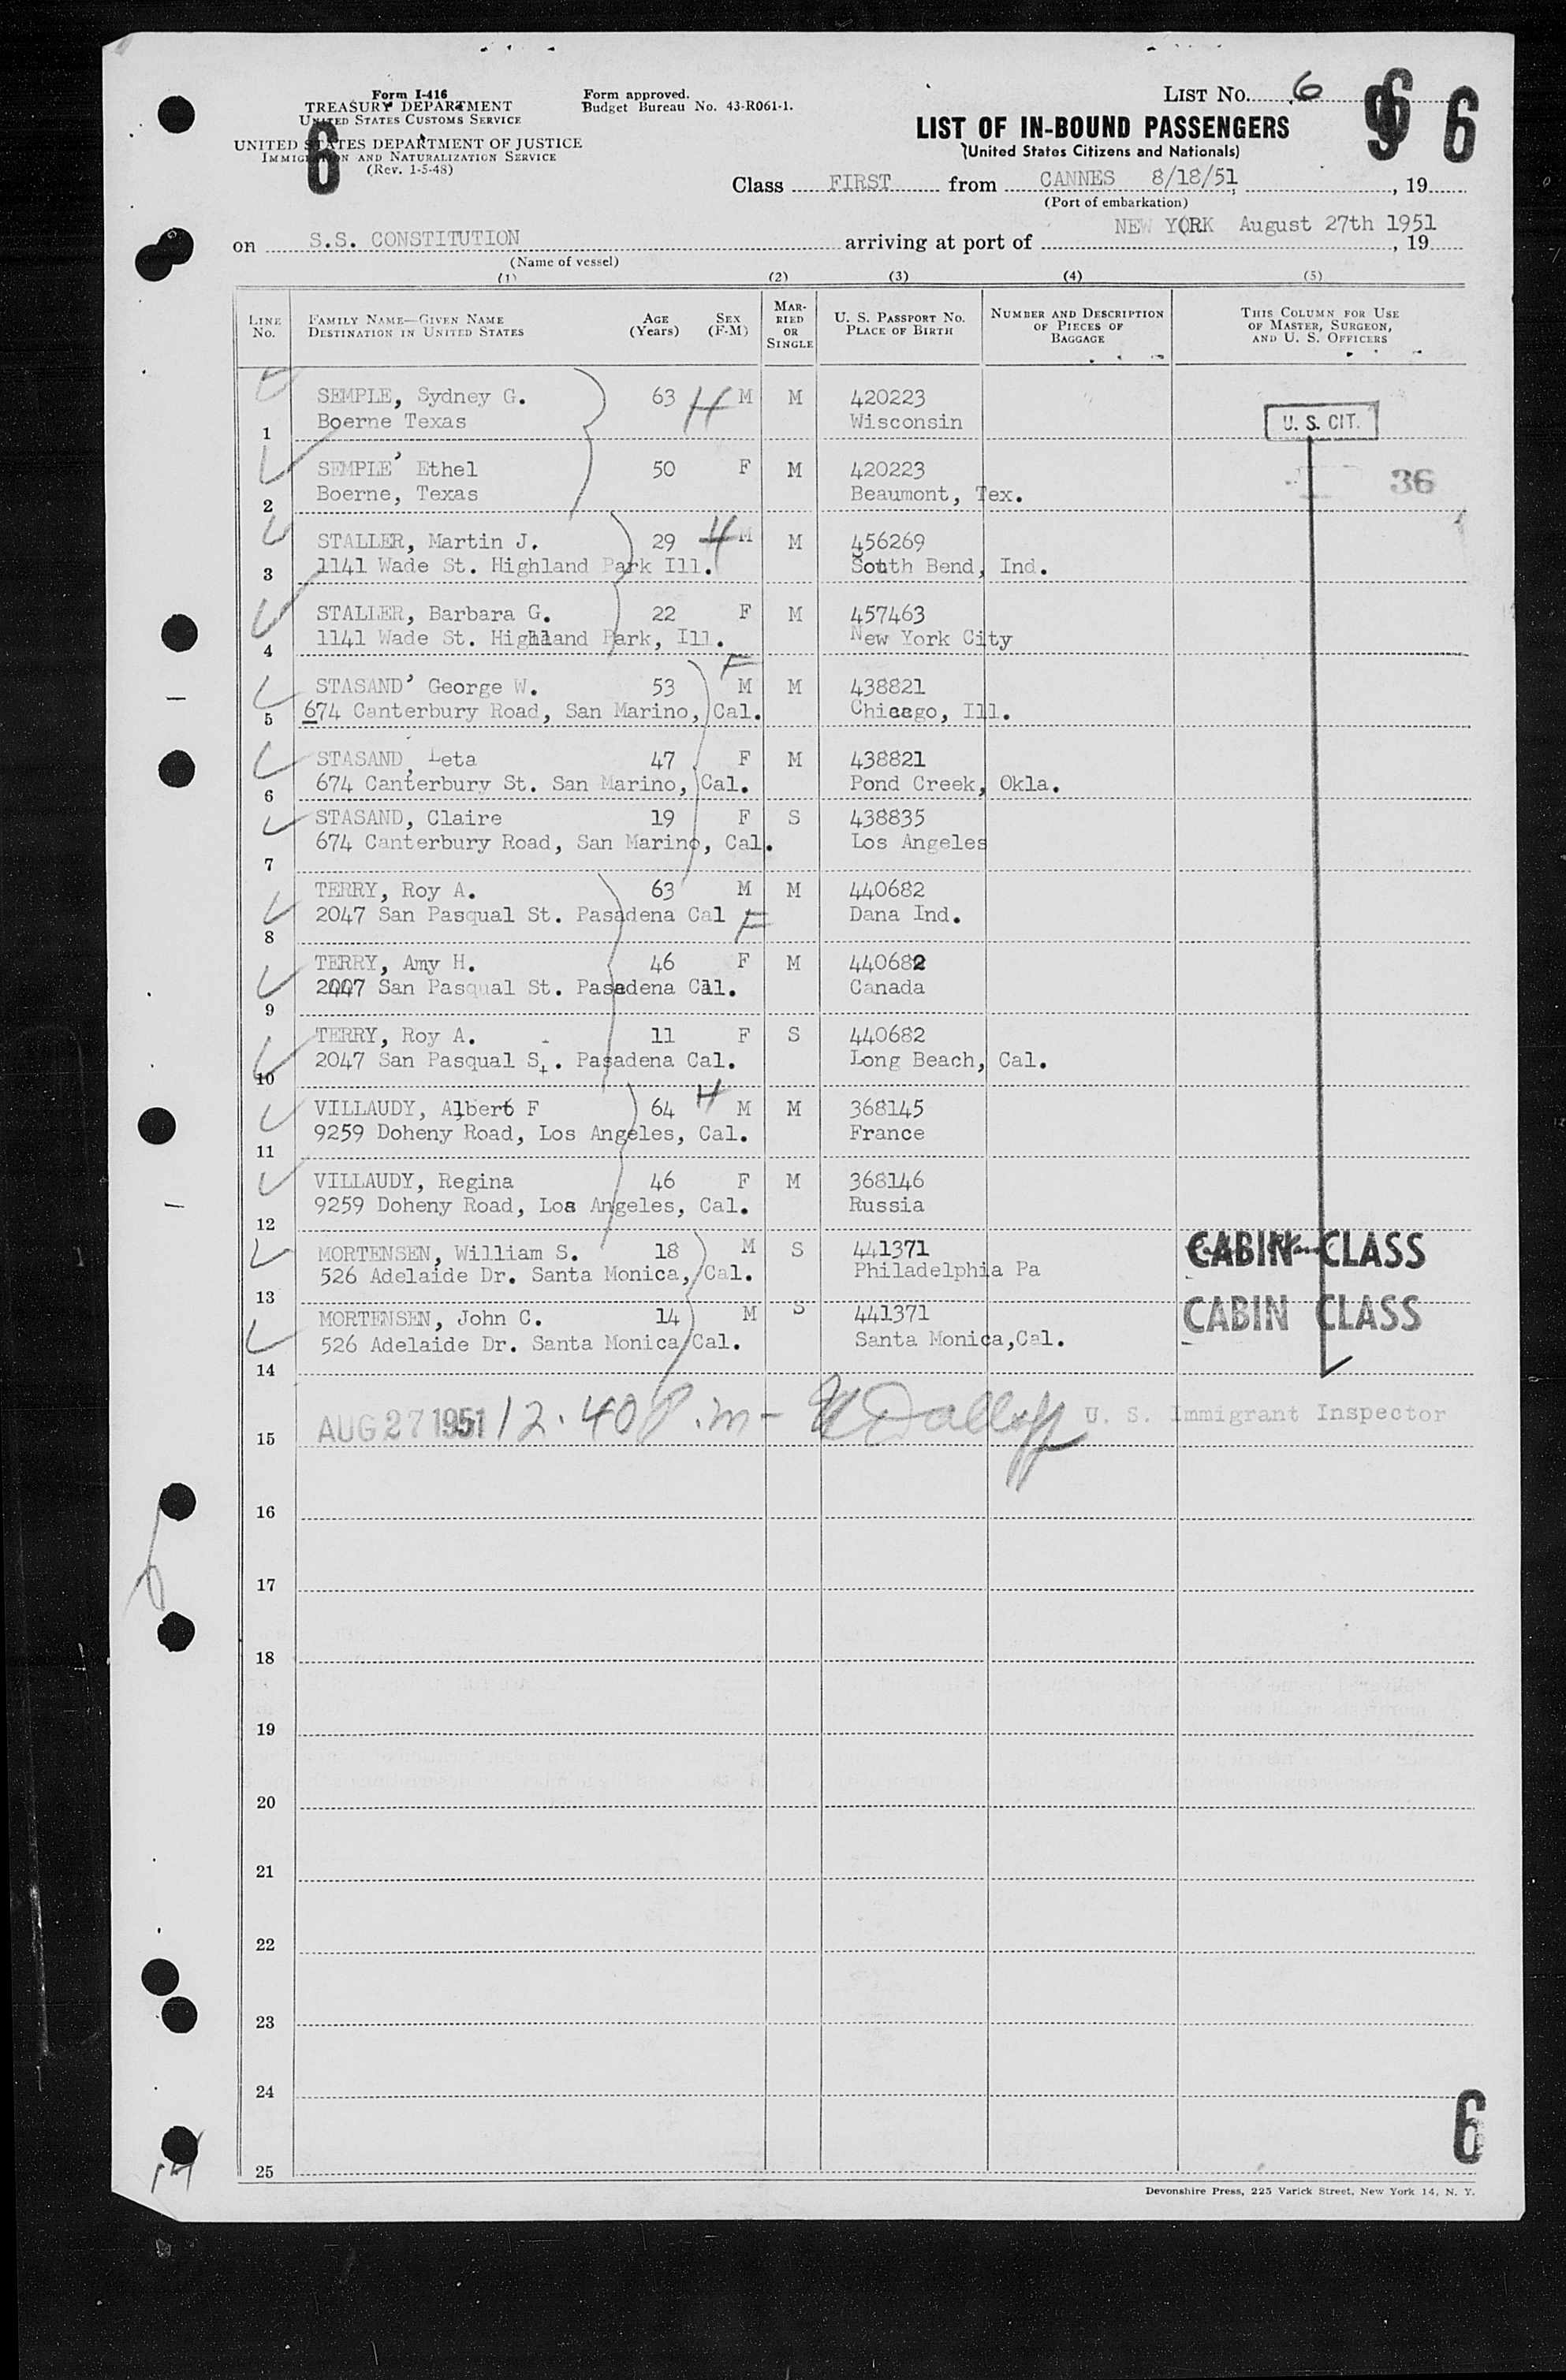 Form I-416
TREASURY DEPARTMENT
UNITED STATES CUSTOMS SERVICE
UNITED STATES DEPARTMENT OF JUSTICE
IMMIGRATION AND NATURALIZATION SERVICE
(Rev. 1-5-48)
6
Form approved.
Budget Bureau No. 43-R061-1.
LIST NO. 6
6 6
LIST OF IN-BOUND PASSENGERS
(United States Citizens and Nationals)
Class FIRST from CANNES 8/18/51, 19
(Port of embarkation)
on S.S. CONSTITUTION arriving at port of NEW YORK August 27th 1951, 19
(Name of vessel)
(1) (2) (3) (4) (5)
LINE NO. FAMILY NAME—GIVEN NAME DESTINATION IN UNITED STATES AGE (Years) SEX (F-M) MARRIED OR SINGLE U. S. PASSPORT NO. PLACE OF BIRTH NUMBER AND DESCRIPTION OF PIECES OF BAGGAGE THIS COLUMN FOR USE OF MASTER, SURGEON, AND U. S. OFFICERS
SEMPLE, Sydney G. 63 H M M 420223
1 Boerne Texas Wisconsin U. S. CIT.
SEMPLE' Ethel 50 F M 420223 36
2 Boerne, Texas Beaumont, Tex.
STALLER, Martin J. 29 H M M 456269
3 1141 Wade St. Highland Park Ill. South Bend, Ind.
STALLER, Barbara G. 22 F M 457463
4 1141 Wade St. Highland Park, Ill. New York City
F
STASAND' George W. 53 M M 438821
5 674 Canterbury Road, San Marino, Cal. Chicago, Ill.
STASAND, Leta 47 F M 438821
6 674 Canterbury St. San Marino, Cal. Pond Creek, Okla.
STASAND, Claire 19 F S 438835
7 674 Canterbury Road, San Marino, Cal. Los Angeles
TERRY, Roy A. 63 M M 440682
8 2047 San Pasqual St. Pasadena Cal F Dana Ind.
TERRY, Amy H. 46 F M 440682
9 2047 San Pasqual St. Pasadena Cal. Canada
TERRY, Roy A. 11 F S 440682
10 2047 San Pasqual St. Pasadena Cal. Long Beach, Cal.
VILLAUDY, Albert F 64 H M M 368145
11 9259 Doheny Road, Los Angeles, Cal. France
VILLAUDY, Regina 46 F M 368146
12 9259 Doheny Road, Los Angeles, Cal. Russia
MORTENSEN, William S. 18 M S 441371 CABIN CLASS
13 526 Adelaide Dr. Santa Monica, Cal. Philadelphia Pa
MORTENSEN, John C. 14 M S 441371 CABIN CLASS
14 526 Adelaide Dr. Santa Monica Cal. Santa Monica, Cal.
15 AUG 27 1951 12.40 P.m- U. S. Immigrant Inspector
16
17
18
19
20
21
22
23
24
25
6
Devonshire Press, 225 Varick Street, New York 14, N. Y.